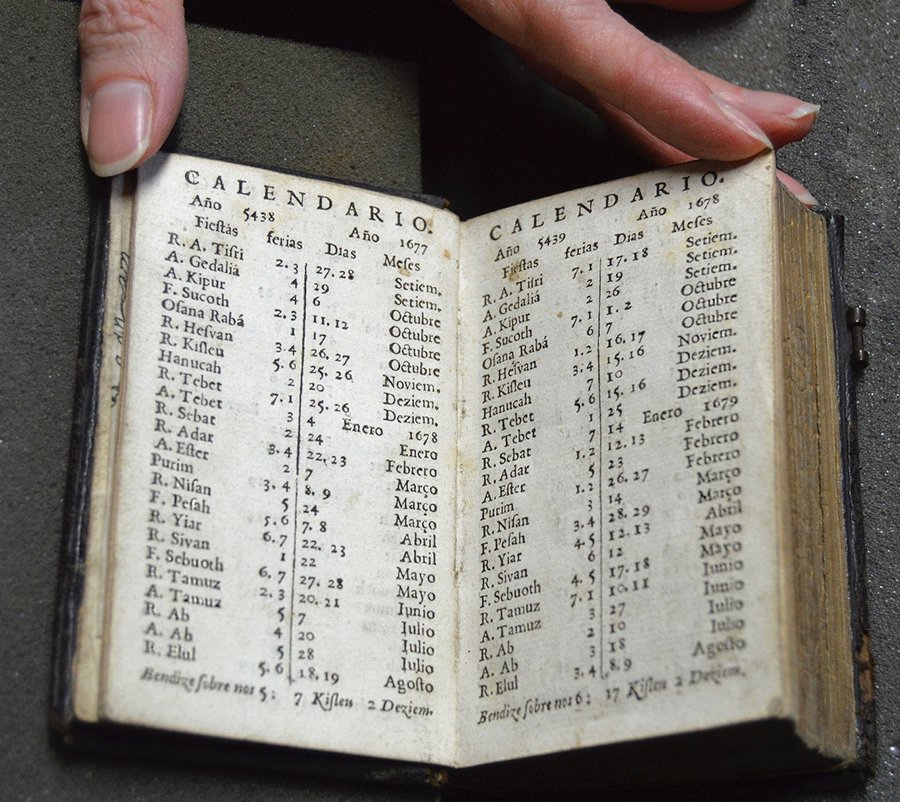 CALENDARIO.
Año 5438 Año 1677
Fieſtas ferias Dias Meſes
R. A. Tiſri 2.3 27.28 Setiem.
A. Gedaliá 4 29 Setiem.
A. Kipur 4 6 Octubre
F. Sucoth 2.3 11.12 Octubre
Oſana Rabá 1 17 Octubre
R. Heſvan 3.4 26.27 Octubre
R. Kiſleu 5.6 25.26 Noviem.
Hanucah 2 20 Deziem.
R. Tebet 7.1 25.26 Deziem.
A. Tebet 3 4 Enero 1678
R. Sebat 2 24 Enero
R. Adar 3.4 22,23 Febrero
A. Eſter 2 7 Março
Purim 3.4 8.9 Março
R. Niſan 5 24 Março
F. Peſah 5.6 7.8 Abril
R. Yiar 6.7 22.23 Abril
R. Sivan 1 22 Mayo
F. Sebuoth 6,7 27.28 Mayo
R. Tamuz 2.3 20.21 Junio
A. Tamuz 5 7 Julio
R. Ab 4 20 Julio
A. Ab 5 28 Julio
R. Elul 5.6 18.19 Agoſto
Bendize ſobre nos 5: 7 Kiſleu 2 Deziem.
CALENDARIO.
Año 5439 Año 1678
Fieſtas ferias Dias Meſes
R. A. Tiſri 7.1 17.18 Setiem.
A. Gedaliá 2 19 Setiem.
A. Kipur 2 26 Setiem.
F. Sucoth 7.1 1.2 Octubre
Oſana Rabá 6 7 Octubre
R. Heſvan 1.2 16,17 Octubre
R. Kiſleu 3.4 15.16 Noviem.
Hanucah 7 10 Deziem.
R. Tebet 5.6 15.16 Deziem.
A. Tebet 1 25 Deziem.
R. Sebat 7 14 Enero 1679
R. Adar 1.2 12.13 Febrero
A. Eſter 5 23 Febrero
Purim 1.2 26.27 Febrero
R. Niſan 3 14 Março
F. Peſah 3.4 28.29 Março
R. Yiar 4.5 12.13 Abril
R. Sivan 6 12 Mayo
F. Sebuoth 4.5 17.18 Mayo
R. Tamuz 7.1 10.11 Junio
A. Tamuz 3 27 Junio
R. Ab 2 10 Julio
A. Ab 3 18 Julio
R. Elul 3.4 8,9 Agoſto
Bendize ſobre nos 6: 17 Kiſleu 2 Deziem.